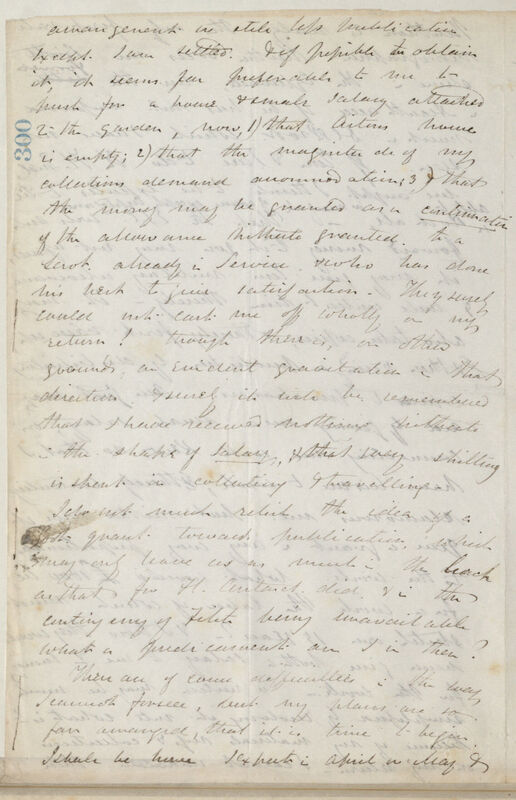 arrangement or still less publication
except I am settled. & if possible to obtain
it, it seems far preferable to me to
push for a home & small salary attached
to the garden, now, 1) that Aitons house
is empty; 2) that the magnitude of my
collections demand accommodation; 3) & that
the money may be granted as a continuation
of the allowance hitherto granted. to a
Servt. already in Service & who has done
his best to give satisfaction. They surely
could not cast me off wholly on my
return! though there is, on other
grounds, an evident gravitation in that
direction surely it will be remembered
that I have received nothing hitherto
in the shape of Salary, & that every shilling
is spent in collecting & travelling.
I do not much relish the idea of a
grant towards publication which
may only leave us as much in the lurch
as that for Fl. Antarct. did, & in the
contingency of Fitch being unavailable
what a predicament am I in then?
There are of course difficulties in the way
I cannot forsee, but my plans are so
far arranged, that it is time to begin.
I shall be home I expect in April or May &
300